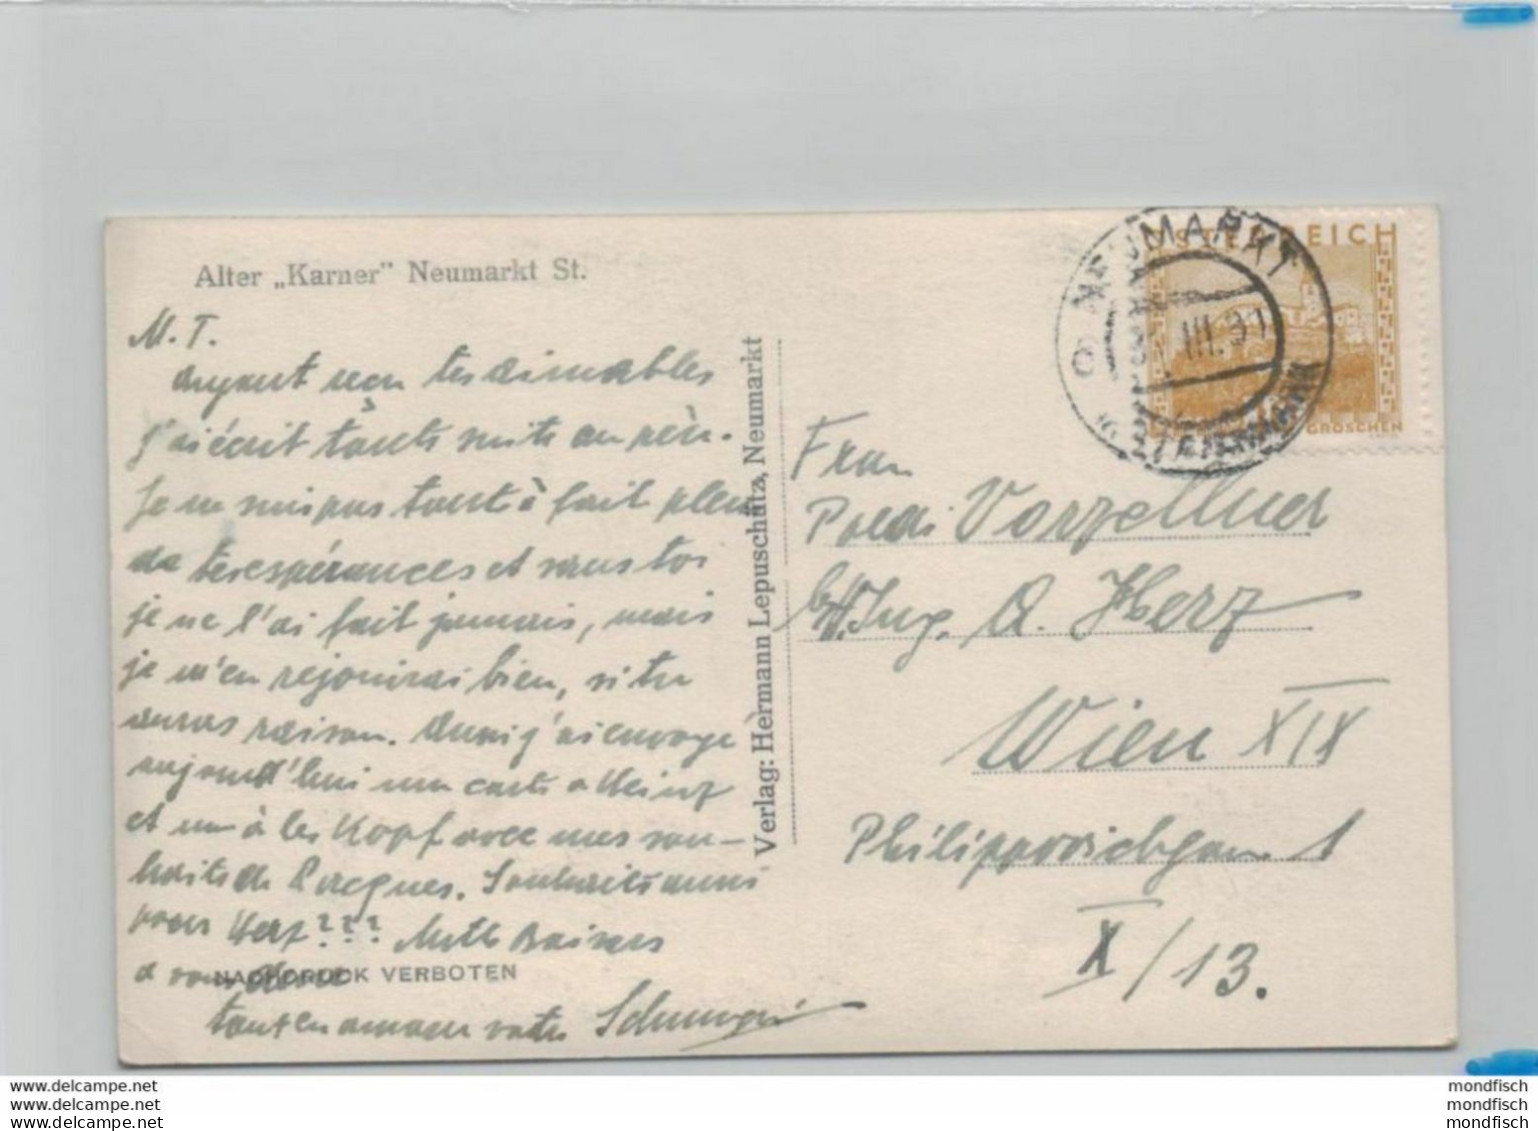 Alter „Karner" Neumarkt St.
M. T.
ayant reçu tes aimables
j'ai écrit tante suite au père.
Je ne suis pas tout à fait plein
de tes espérances et sans toi
je ne l'ai fait jamais, mais
je m'en rejouirai bien, si tu
auras raison. Aussi j'ai envoyé
aujourd'hui une carte a Heinz
et une à les Kopf avec mes sou-
haits de Pacques. Souhaits aussi
pour Herz??? Mille Baisers
a vous
tout en amour votre
NACHDRUCK VERBOTEN
Verlag: Hermann Lepuschütz, Neumarkt
NEUMARKT
III. 31
STEIERMARK
ÖSTERREICH
GROSCHEN
Frau
Poldi Vorzellner
b/H. Ing. A. Herz
Wien XIX
Philippovichgasse 1
X/13.
www.delcampe.net
www.delcampe.net
www.delcampe.net
mondfisch
mondfisch
mondfisch